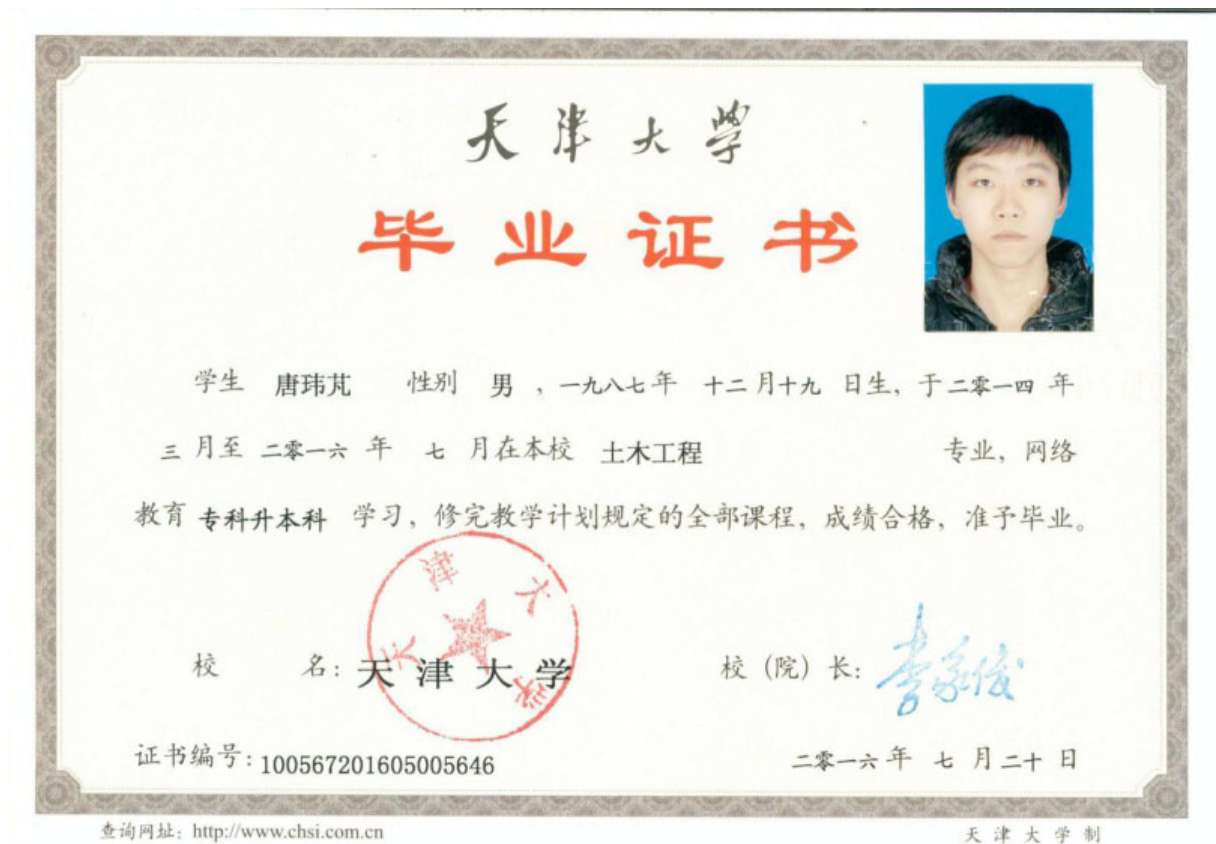 天津大學
毕业证书
学生 唐玮芃 性别 男 ，一九八七年 十二月十九 日生，于二零一四 年
三 月至 二零一六 年 七 月在本校 土木工程 专业，网络
教育 专科升本科 学习，修完教学计划规定的全部课程，成绩合格，准予毕业。
天津大学
校 名：天津大学 校（院）长：李家俊
证书编号：100567201605005646 二零一六年 七 月二十 日
查询网址：http://www.chsi.com.cn 天津大学制